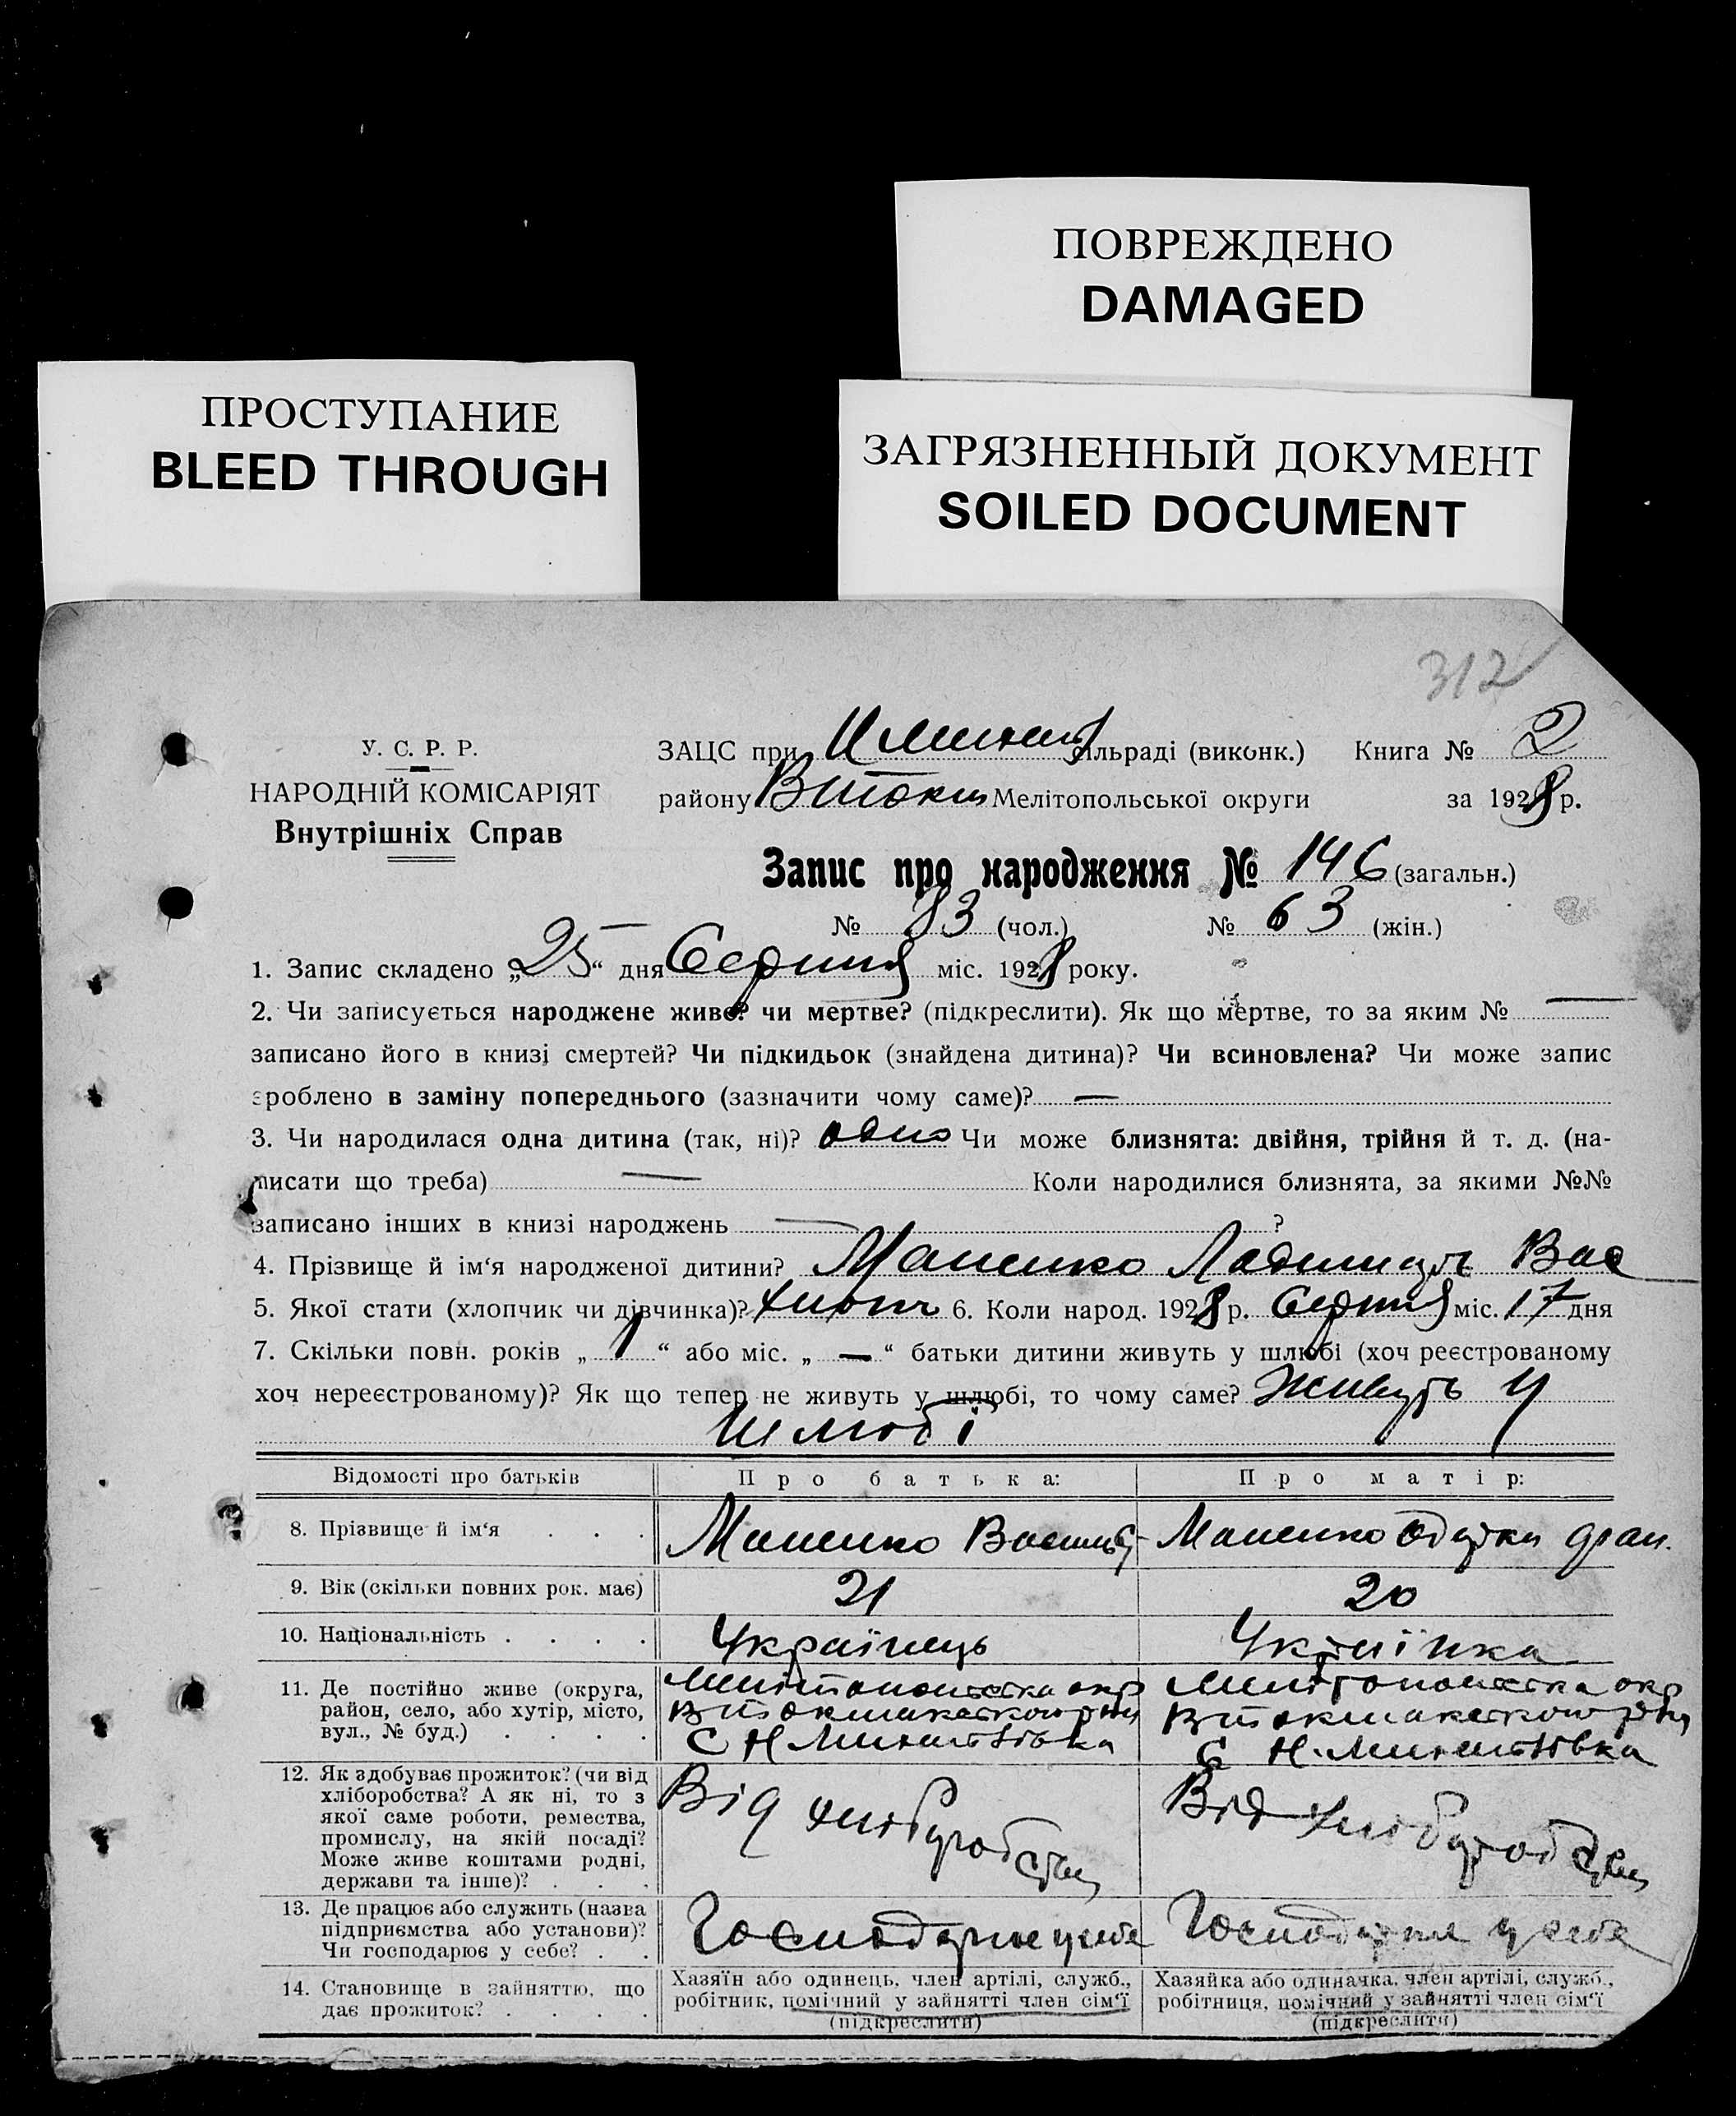 ПОВРЕЖДЕНО
DAMAGED
ПРОСТУПАНИЕ
BLEED THROUGH
ЗАГРЯЗНЕННЫЙ ДОКУМЕНТ
SOILED DOCUMENT
312
У. С. Р. Р.
НАРОДНІЙ КОМІСАРІЯТ
Внутрішніх Справ
ЗАЦС при сільраді (виконк.) Книга № 2
району Мелітопольської округи за 1928 р.
Запис про народження № 146 (загальн.)
№ 83 (чол.) № 63 (жін.)
1. Запис складено „25“ дня Серпня міс. 1928 року.
2. Чи записується народжене живе? чи мертве? (підкреслити). Як що мертве, то за яким № —
записано його в книзі смертей? Чи підкидьок (знайдена дитина)? Чи всиновлена? Чи може запис
зроблено в заміну попереднього (зазначити чому саме)? —
3. Чи народилася одна дитина (так, ні)? одно Чи може близнята: двійня, трійня й т. д. (на-
писати що треба) — Коли народилися близнята, за якими №№
записано інших в книзі народжень — ?
4. Прізвище й ім‘я народженої дитини? Вас
5. Якої стати (хлопчик чи дівчинка)? 6. Коли народ. 1928 р. Серпня міс. 17 дня
7. Скільки повн. років „1“ або міс. „—“ батьки дитини живуть у шлюбі (хоч реєстрованому
хоч нереєстрованому)? Як що тепер не живуть у шлюбі, то чому саме? Живуть у
шлюбі
Відомості про батьків Про батька: Про матір:
8. Прізвище й ім‘я . . .
9. Вік (скільки повних рок. має) 21 20
10. Національність . . . . Українець Українка
11. Де постійно живе (округа,
район, село, або хутір, місто,
вул., № буд.) . . . .
12. Як здобуває прожиток? (чи від
хліборобства? А як ні, то з
якої саме роботи, ремества,
промислу, на якій посаді?
Може живе коштами родні,
держави та інше)? . . .
Від хліборобства
Від хліборобства
13. Де працює або служить (назва
підприємства або установи)?
Чи господарює у себе? . .
Господарює у себе
14. Становище в зайняттю, що
дає прожиток? . . . .
Хазяїн або одинець, член артілі, служб.,
робітник, помічний у зайнятті член сім‘ї
(підкреслити)
Хазяйка або одиначка, член артілі, служб.,
робітниця, помічний у зайнятті член сім‘ї
(підкреслити)